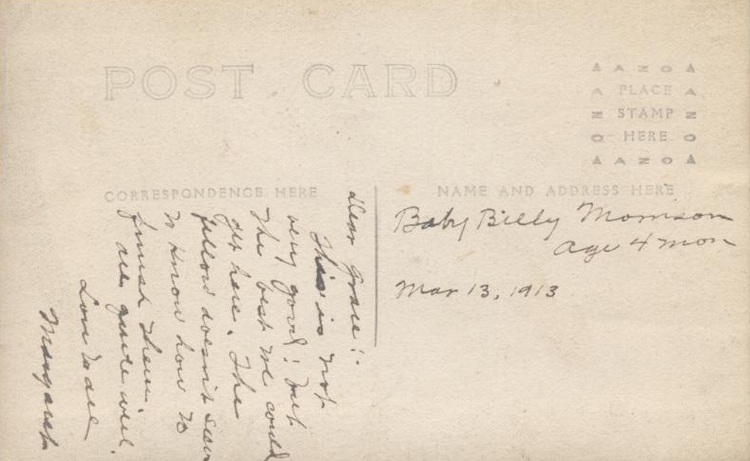 POST CARD
AZO
PLACE
STAMP
HERE
AZO
CORRESPONDENCE HERE
NAME AND ADDRESS HERE
Dear Grace:-
This is not
very good; but
the best we could
get here. The
fellow doesn't seem
to know how to
finish them.
all quite well.
Love to all
Margaret
Baby Billy Morrison
Age 4 mon
Mar 13, 1913